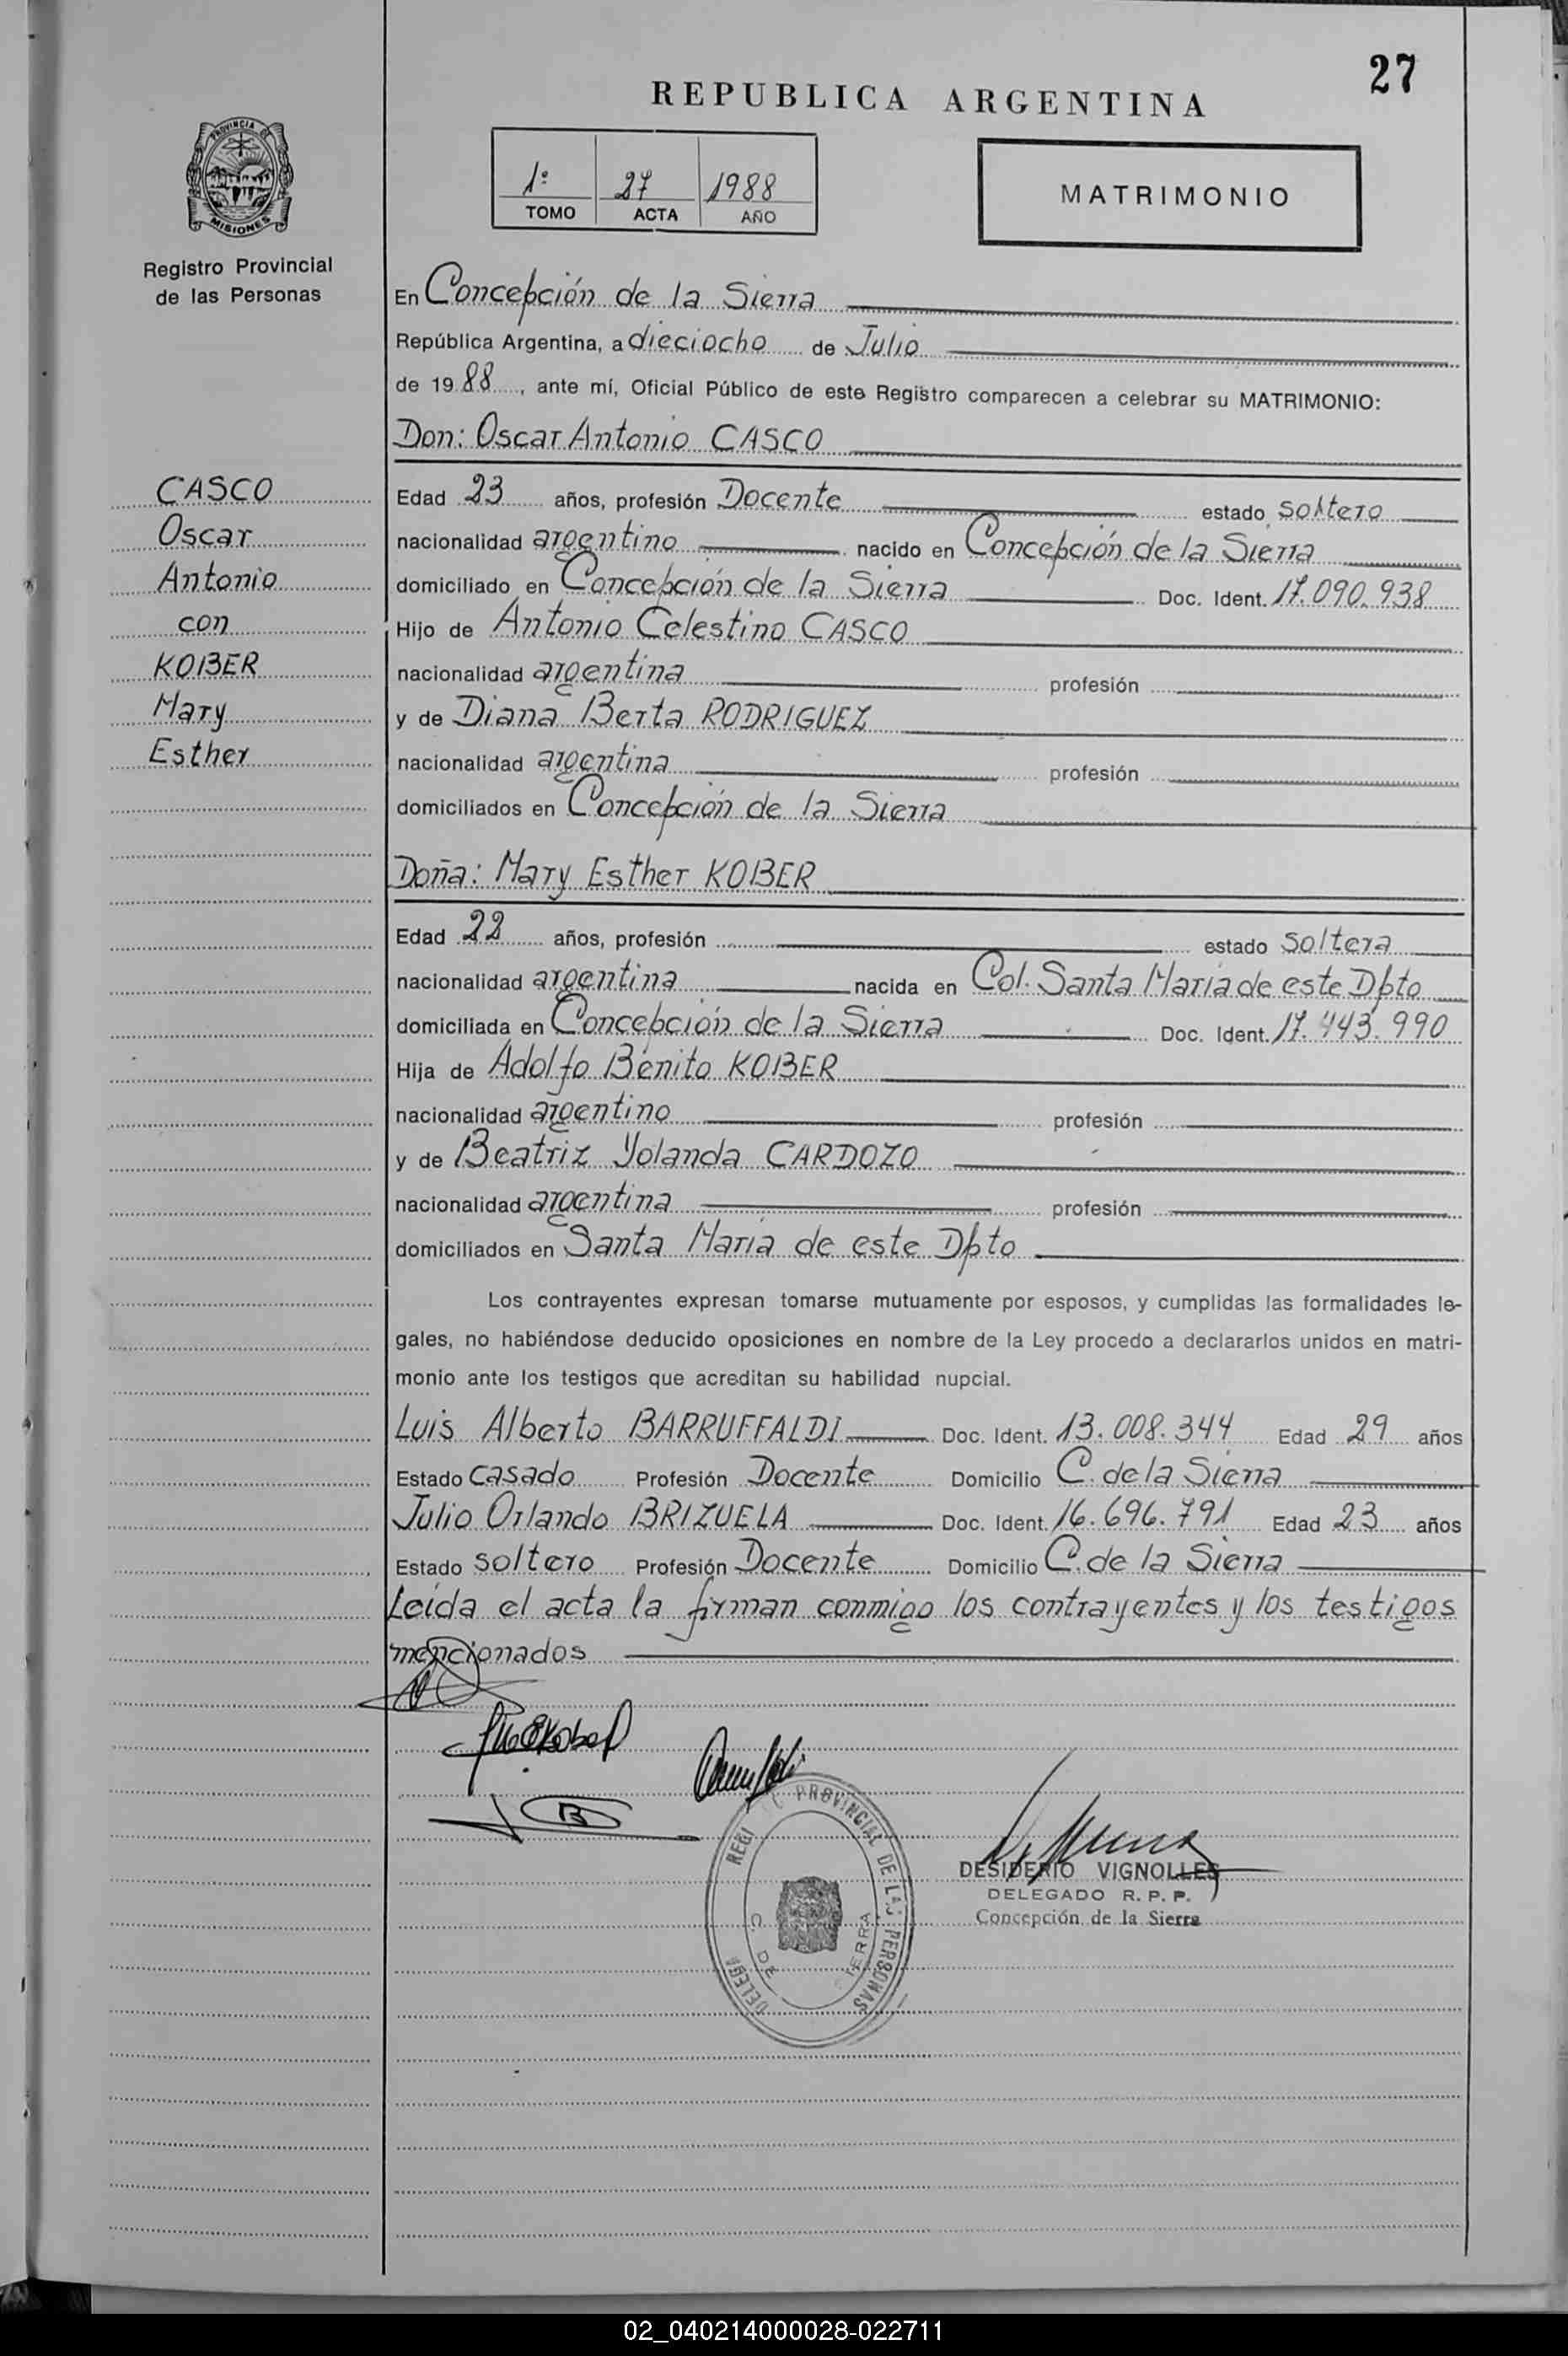 27
REPUBLICA ARGENTINA
1º 27 1988
TOMO ACTA AÑO
MATRIMONIO
PROVINCIA DE
MISIONES
Registro Provincial
de las Personas
En Concepción de la Sierra
República Argentina, a dieciocho de Julio
de 1988, ante mí, Oficial Público de este Registro comparecen a celebrar su MATRIMONIO:
Don: Oscar Antonio CASCO
CASCO
Oscar
Antonio
con
KOBER
Mary
Esther
Edad 23 años, profesión Docente estado soltero
nacionalidad argentino nacido en Concepción de la Sierra
domiciliado en Concepción de la Sierra Doc. Ident. 17.090.938
Hijo de Antonio Celestino CASCO
nacionalidad argentina profesión
y de Diana Berta RODRIGUEZ
nacionalidad argentina profesión
domiciliados en Concepción de la Sierra
Doña: Mary Esther KOBER
Edad 22 años, profesión estado soltera
nacionalidad argentina nacida en Col. Santa María de este Dpto
domiciliada en Concepción de la Sierra Doc. Ident. 17.443.990
Hija de Adolfo Benito KOBER
nacionalidad argentino profesión
y de Beatriz Yolanda CARDOZO
nacionalidad argentina profesión
domiciliados en Santa María de este Dpto
Los contrayentes expresan tomarse mutuamente por esposos, y cumplidas las formalidades le-
gales, no habiéndose deducido oposiciones en nombre de la Ley procedo a declararlos unidos en matri-
monio ante los testigos que acreditan su habilidad nupcial.
Luis Alberto BARRUFFALDI Doc. Ident. 13.008.344 Edad 29 años
Estado casado Profesión Docente Domicilio C. de la Sierra
Julio Orlando BRIZUELA Doc. Ident. 16.696.791 Edad 23 años
Estado soltero Profesión Docente Domicilio C. de la Sierra
Leída el acta la firman conmigo los contrayentes y los testigos
mencionados
REGI PROVINCIAL DE LAS PERSONAS
DELEG
C. DE SIERRA
DESIDERIO VIGNOLLES
DELEGADO R. P. P.
Concepción de la Sierra
02_040214000028-022711